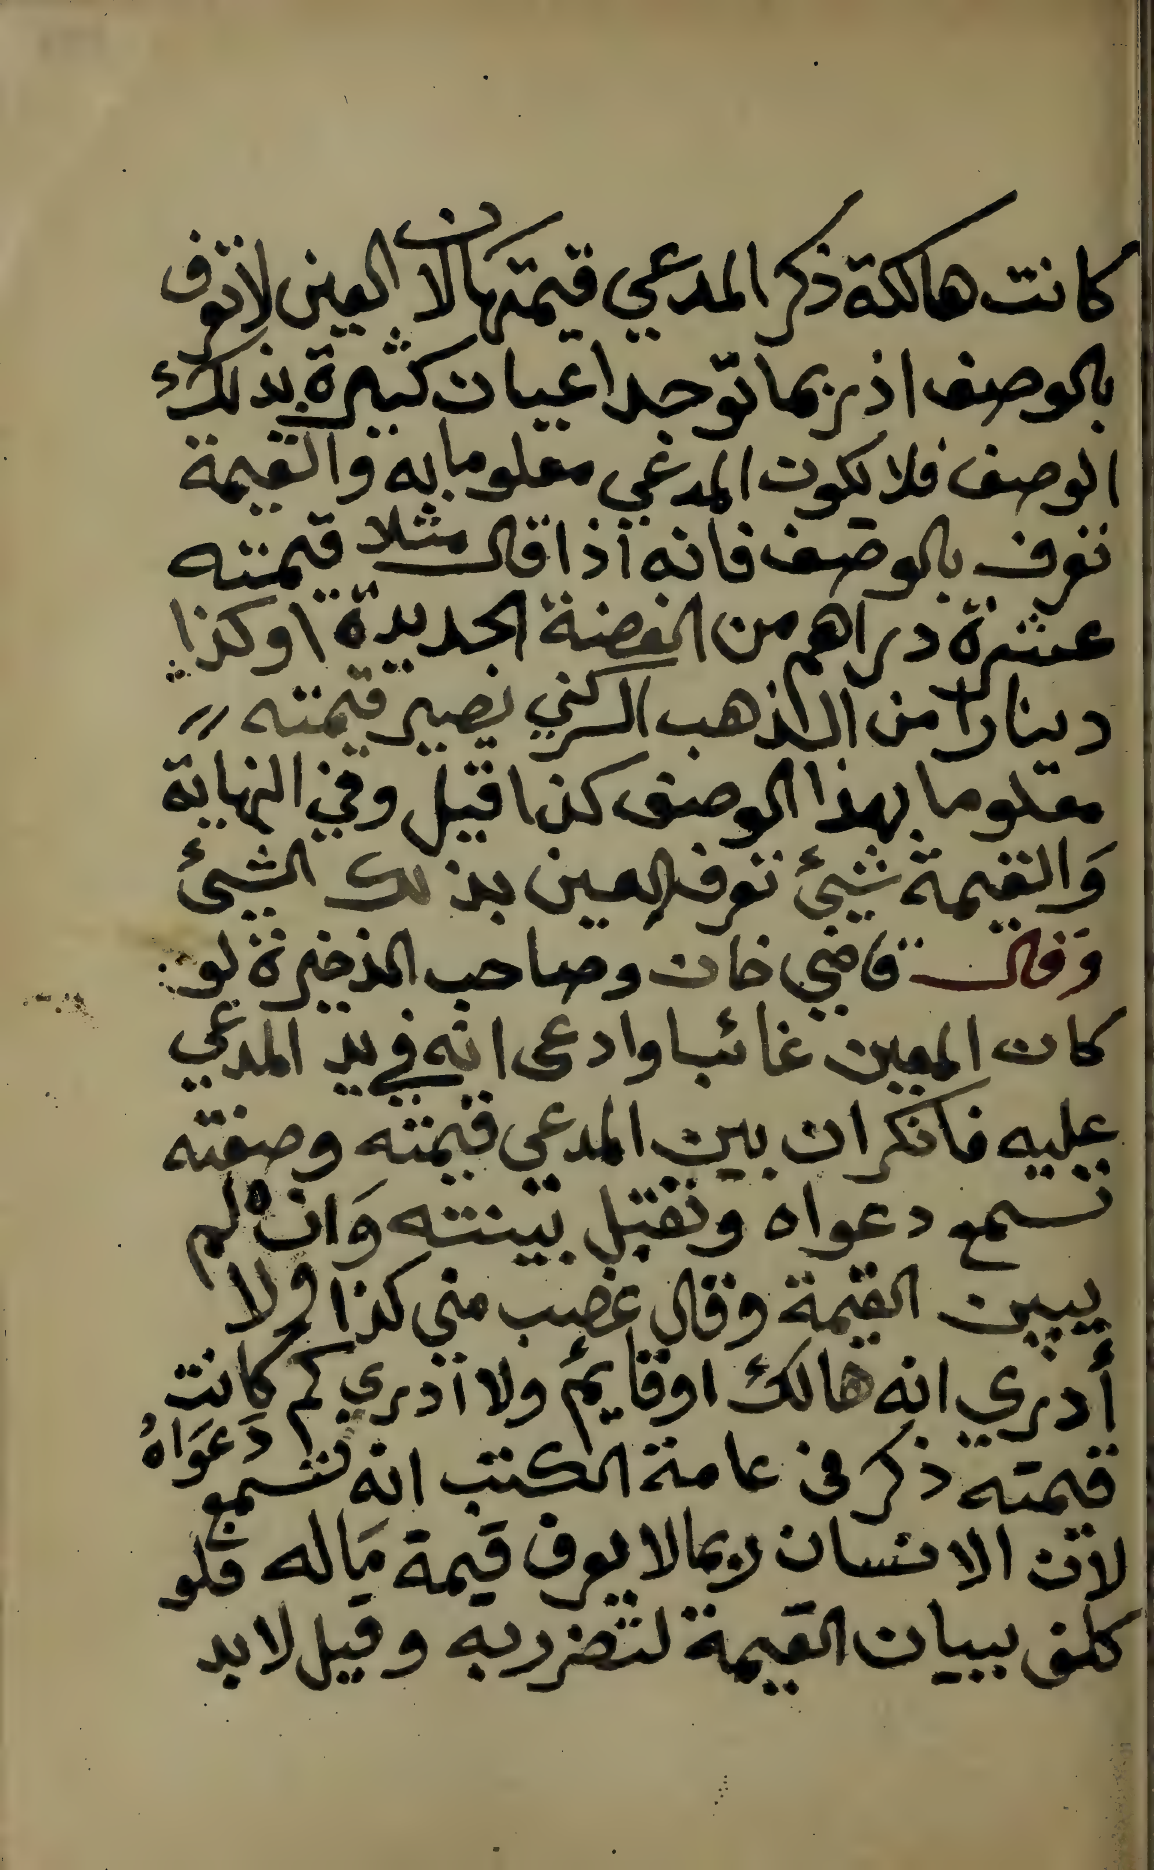 كانت هالكة ذكر المدعي قيمتها لان العين لا تعرف
بالوصف اذ ربما توجد اعيان كثيرة بذلك
الوصف فلا يكون المدعي معلوما به والقيمة
تعرف بالوصف فانه اذا قال مثلا قيمته
عشرة دراهم من الفضة الجديدة او كذا
دينارا من الذهب الركني يصير قيمته
معلوما بهذا الوصف كذا قيل وفي النهاية
وَالقيمة شيئ تعرف العين بذلك الشيئ
وَقال قاضي خان وصاحب الذخيرة لو
كان العين غائبا وادعى انه في يد المدعي
عليه فانكر ان بين المدعي قيمته وصفته
تسمع دعواه وتقبل بينته وَان لم
يبين القيمة وقال غصب مني كذا ولا
أدري انه هالك او قايم ولا أدري كم كانت
قيمته ذكر في عامة الكتب انه تسمع دَعوَاهُ
لان الانسان ربما لا يعرف قيمة مَاله فلو
كلف ببيان القيمة لتضرر به وقيل لا بد